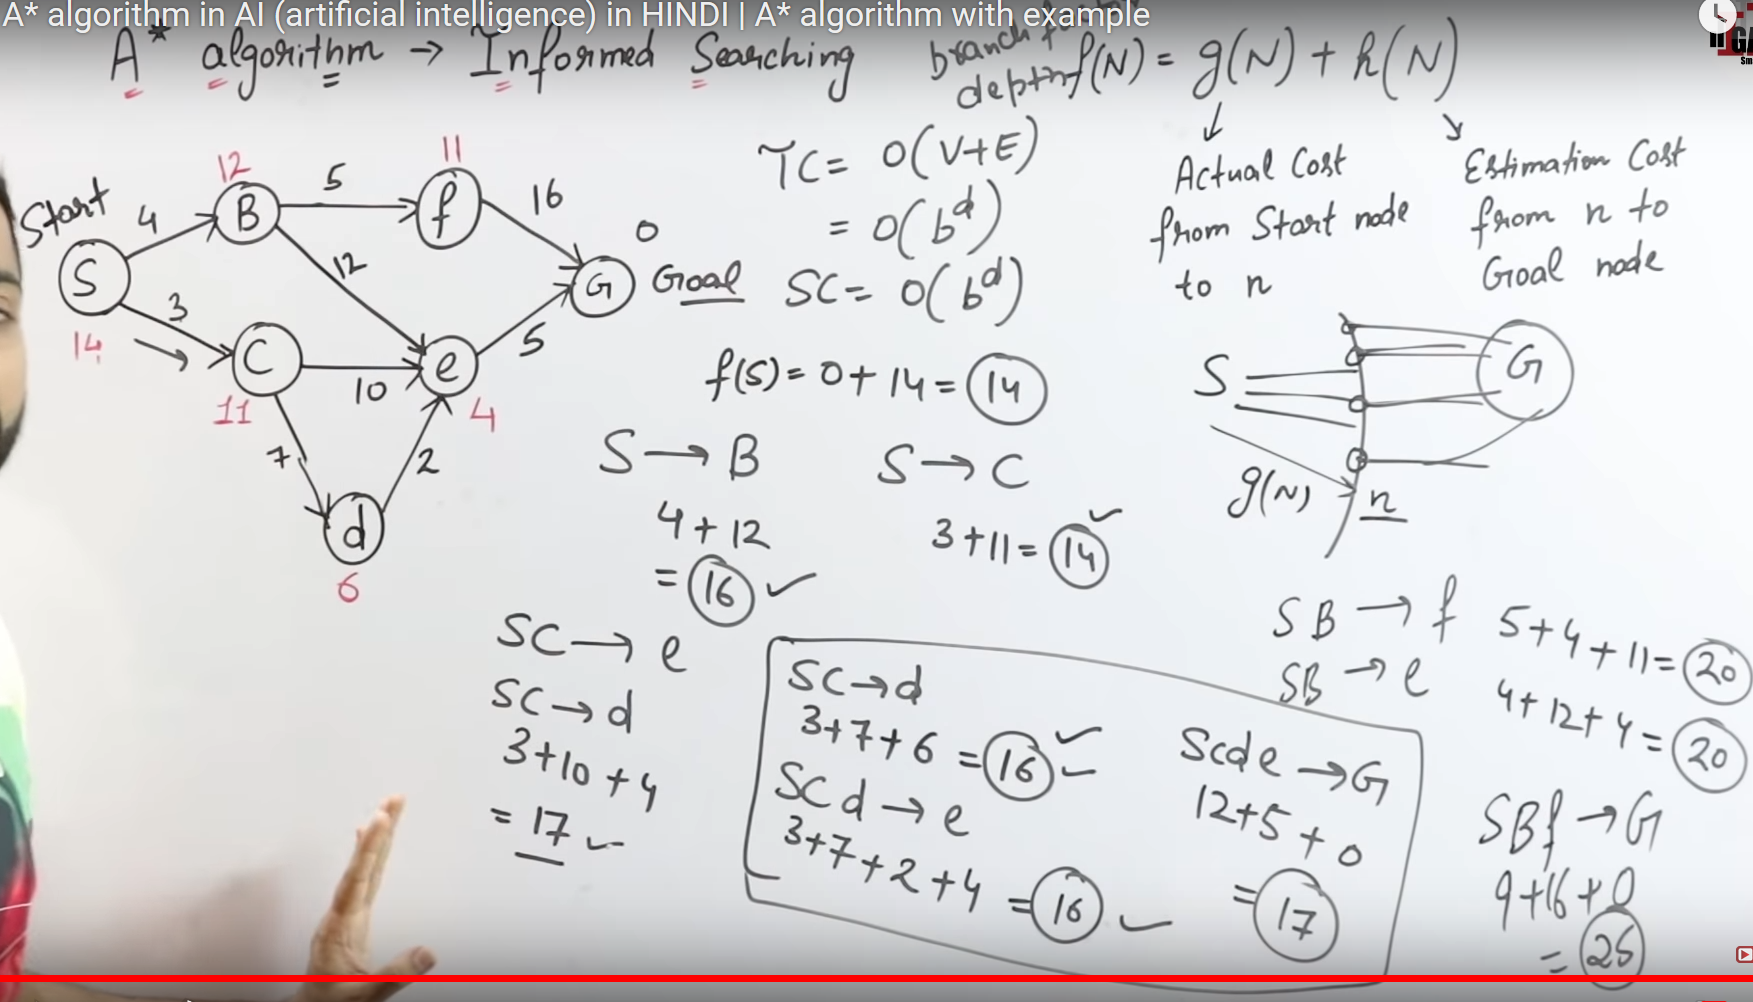 A* algorithm in AI (artificial intelligence) in HINDI | A* algorithm with example
A* algorithm → Informed Searching
branch
depth
f(N) = g(N) + h(N)
Actual Cost
from Start node
to n
Estimation Cost
from n to
Goal node
TC = O(V+E)
= O(b^d)
SC = O(b^d)
Start
S
14
4
3
B
12
5
12
C
11
10
7
f
11
16
e
4
5
d
6
2
G
0
Goal
f(S) = 0 + 14 = 14
S → B
4 + 12
= 16 ✓
S → C
3 + 11 = 14 ✓
S
G
g(N)
n
SC → e
SC → d
3 + 10 + 4
= 17 ✓
SC → d
3 + 7 + 6 = 16 ✓
SCd → e
3 + 7 + 2 + 4 = 16 ✓
Scde → G
12 + 5 + 0
= 17
SB → f 5 + 4 + 11 = 20
SB → e 4 + 12 + 4 = 20
SBf → G
9 + 16 + 0
= 25